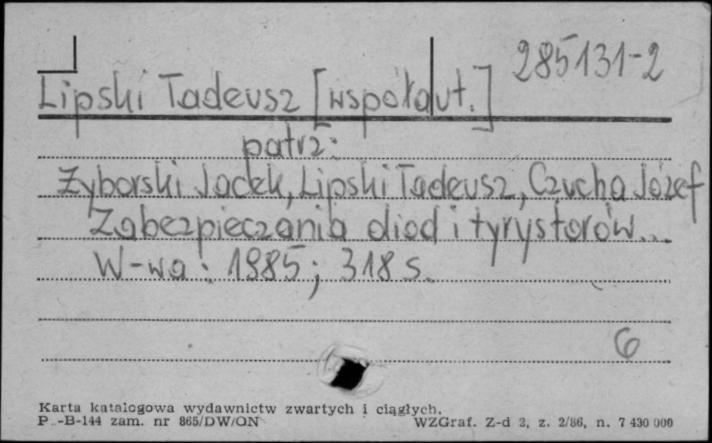 285131-2
Lipski Tadeusz [współaut.]
patrz:
Żyborski Jacek, Lipski Tadeusz, Czucha Józef
Zabezpieczania diod i tyrystorów...
W-wa: 1985; 318 s.
6
Karta katalogowa wydawnictw zwartych i ciągłych.
P-B-144 zam. nr 865/DW/ON WZGraf. Z-d 2, z. 2/86, n. 7 430 000